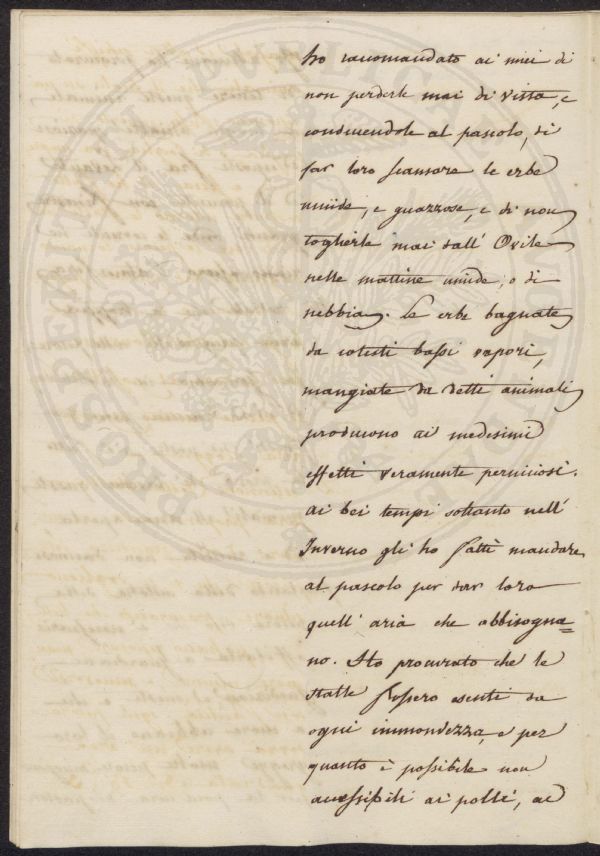 ho racomandato ai miei di
non perderle mai di vista, e
conducendole al pascolo, di
far loro scansare le erbe
umide, e guazzose, e di non
toglierle mai dall' Ovile
nelle mattine umide, o di
nebbia. Le erbe bagnate
da cotesti bassi vapori,
mangiate da detti animali
producono ai medesimi
effetti veramente perniciosi.
ai bei tempi soltanto nell'
Inverno gli ho fatti mandare
al pascolo per dar loro
quell' aria che abbisogna=
no. Ho procurato che le
stalle fossero esenti da
ogni immondezza, e per
quanto è possibile non
accessibili ai polli, ed